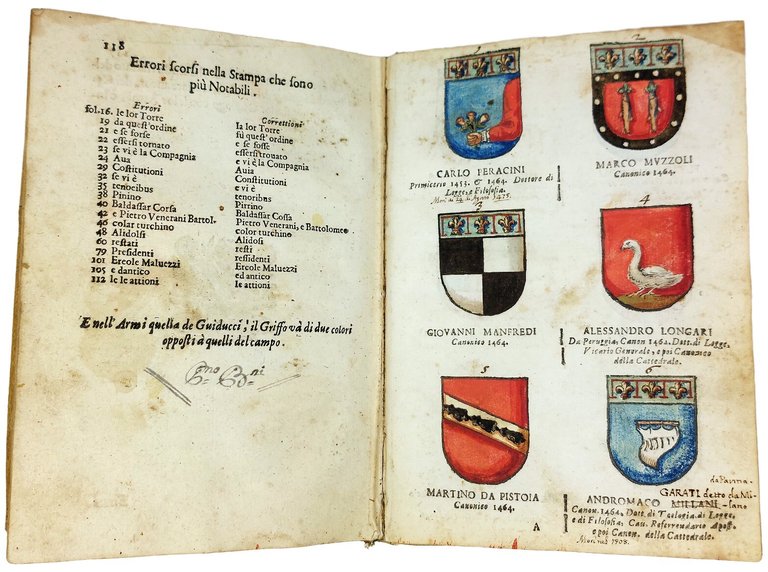 118
Errori scorsi nella Stampa che sono
più Notabili.
Errori Correttioni
fol. 16. le lor Torre la lor Torre
19 da quest'ordine sù quest'ordine
21 e se forse e se fosse
22 essersi tornato essersi trovato
23 se vi è la Compagnia e vi è la Compagnia
24 Aua Avia
29 Costitutioni Constitutioni
32 se vi è e vi è
35 tenocibus tenoribus
38 Pinino Pirrino
40 Baldassar Corsa Baldassar Cossa
42 e Pietro Venerani Bartol. Pietro Venerani, e Bartolomeo
46 colar turchino color turchino
48 Alidolsi Alidosi
60 restati resti
79 Presidenti ressidenti
101 Ercole Maluezzi Ercole Malvezzi
105 e dantico ed antico
112 le le attioni le attioni
E nell'Armi quella de Guiducci, il Griffo và di due colori
opposti à quelli del campo.
1
CARLO FERACINI
Primicerio 1453. & 1464. Dottore di
Legge, e Filosofia.
2
MARCO MVZZOLI
Canonico 1464.
3
GIOVANNI MANFREDI
Canonico 1464.
4
ALESSANDRO LONGARI
Da Peruggia, Canon 1462. Dott. di Legge,
Vicario Generale, e poi Canonico
della Cattedrale.
5
MARTINO DA PISTOIA
Canonico 1464.
6
da Parma
GARATI detto da Mi-
ANDROMACO MILLANI lano
Canon. 1464. Dott. di Teologia, di Legge,
e di Filosofia; Cau. Referendario Apost.
e poi Canon. della Cattedrale.
A